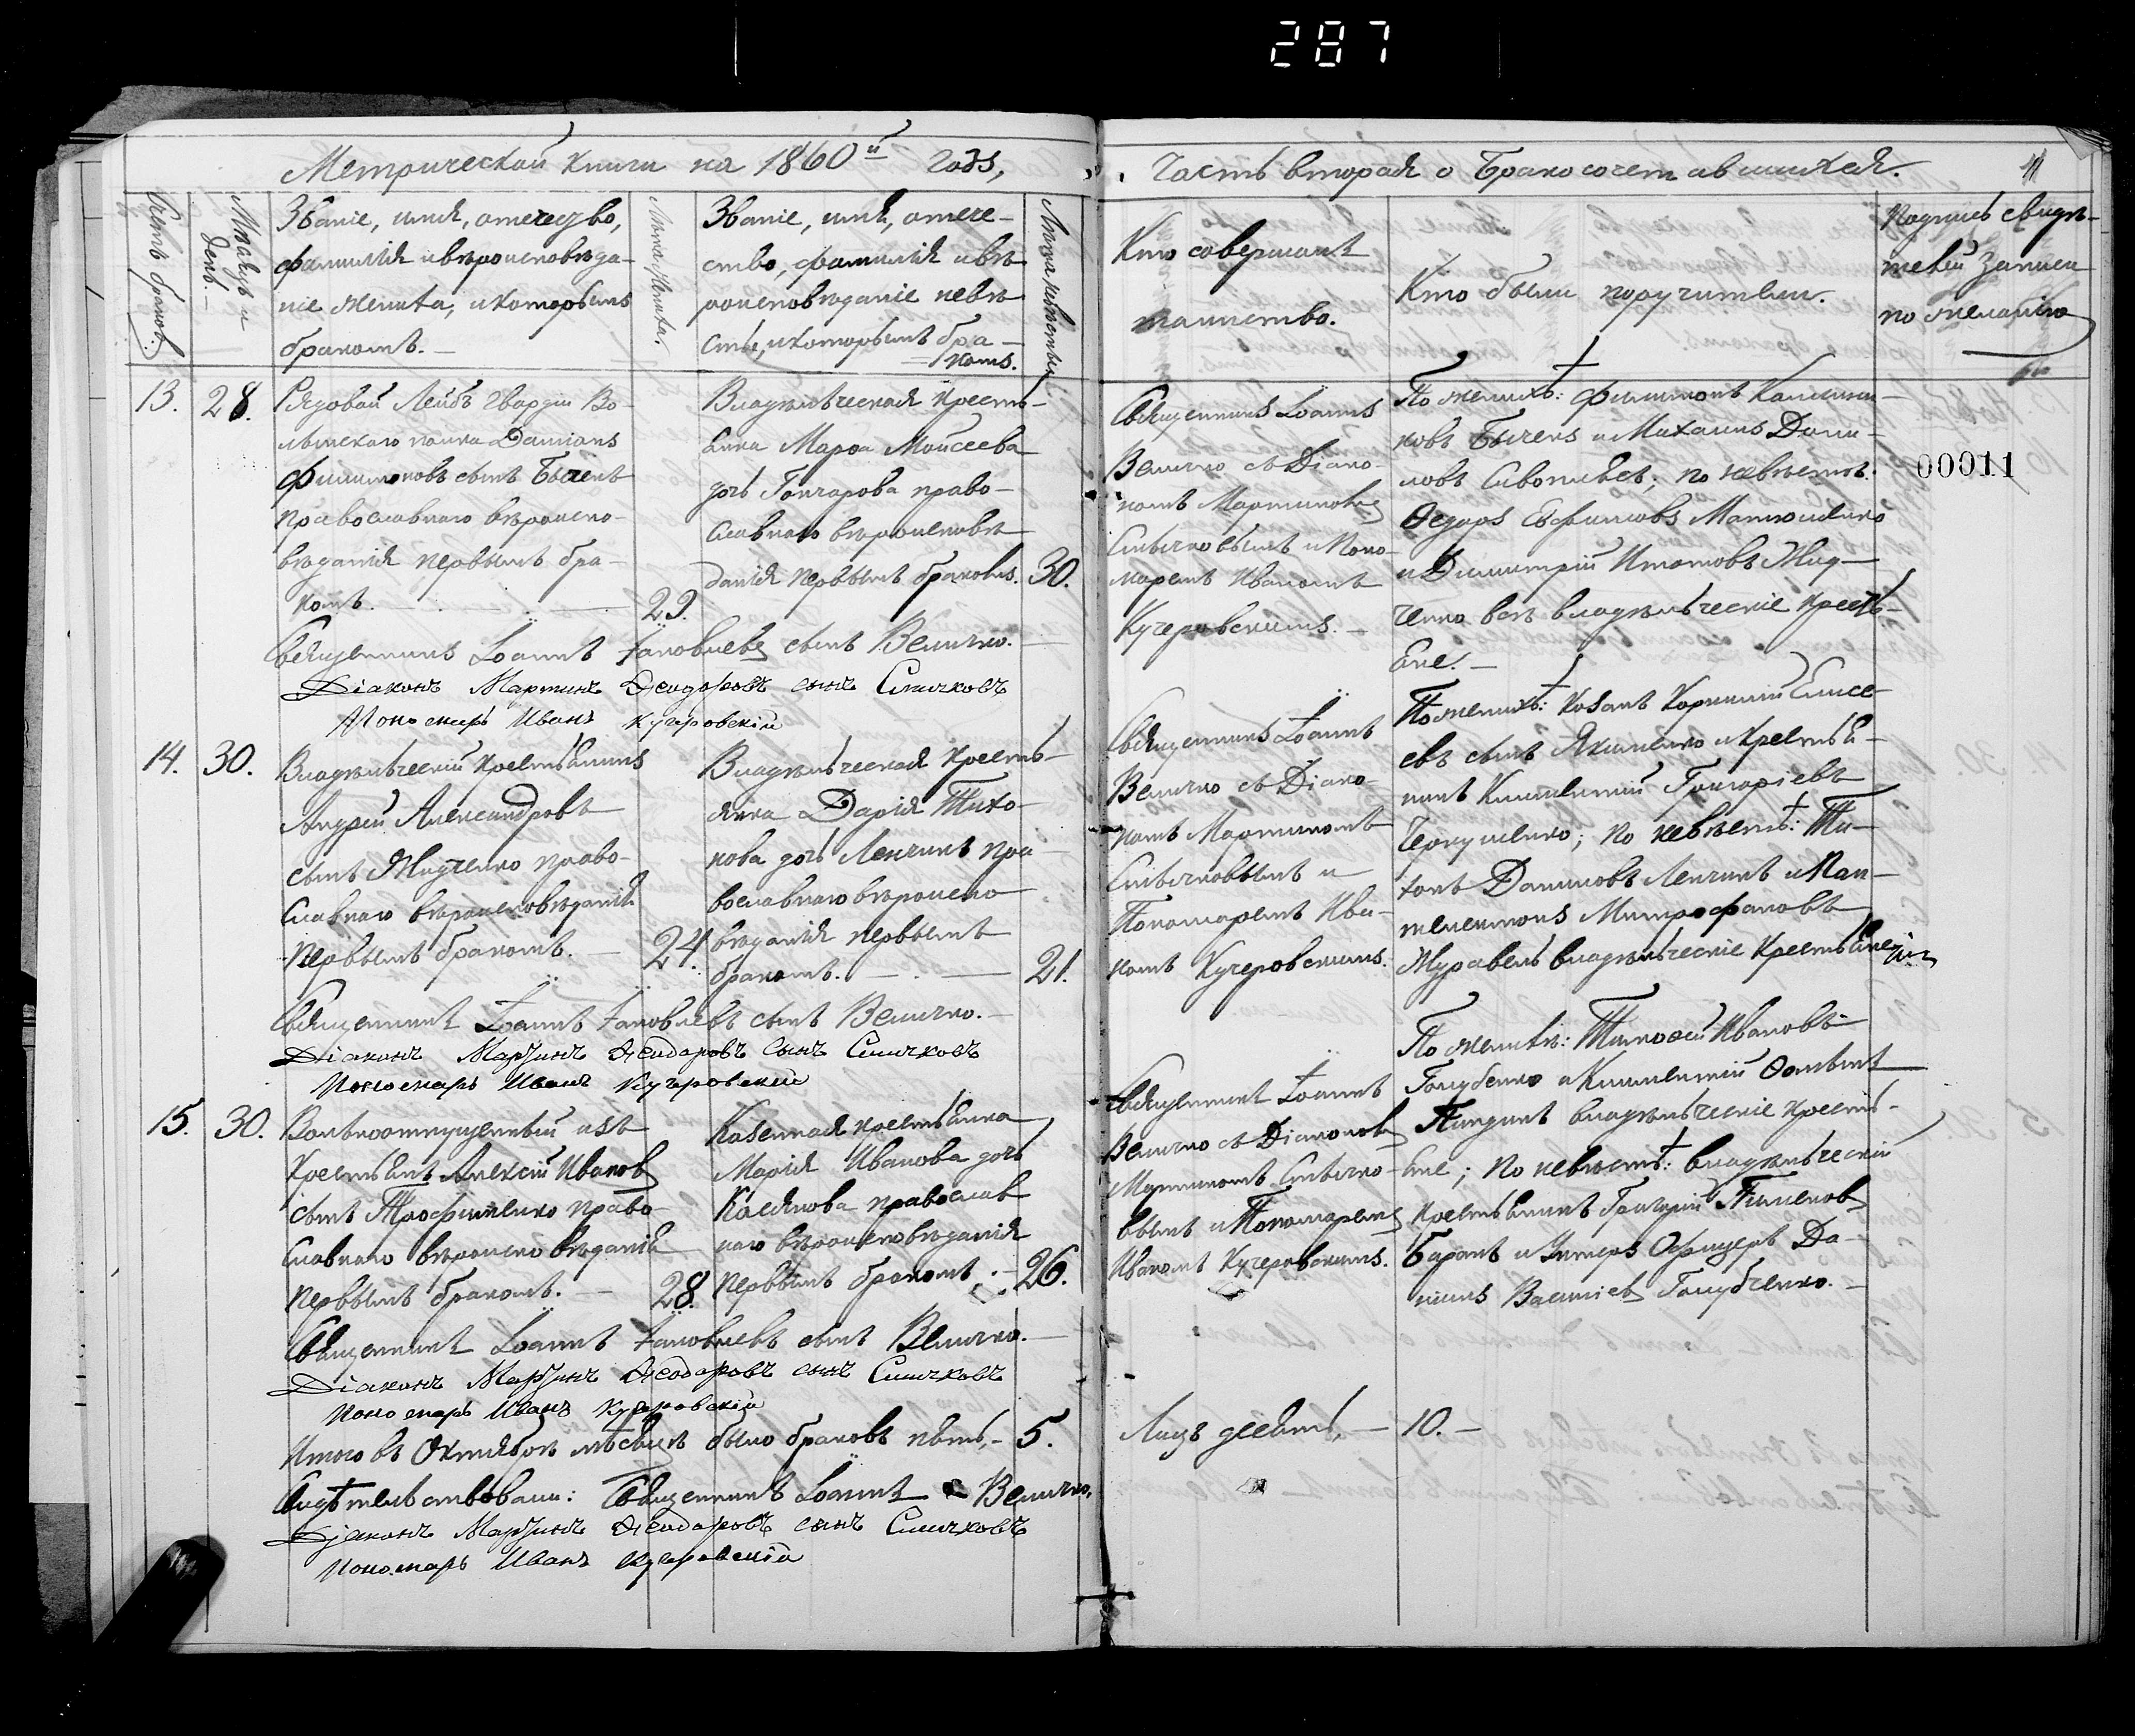 287
Метрической книги на 1860й годъ,
Часть вторая о бракосочетавшихся.
Счетъ браковъ.
Мѣсяцъ и день.
Званіе, имя, отечество,
фамилія и вѣроисповѣда-
ніе жениха, и которымъ
бракомъ.
Лѣта жениха.
Званіе, имя, отече-
ство, фамилія и вѣ-
роисповѣданіе невѣ-
сты, и которымъ бра-
комъ.
Лѣта невѣсты.
Кто совершалъ
таинство.
Кто были поручители.
Подпись свидѣ-
телей записи
по желанію
13. 28.
Рядовой Лейбъ Гвардіи Во-
лынскаго полка Даміанъ
Филимоновъ сынъ Бычекъ
православнаго вѣроиспо-
вѣданія первымъ бра-
комъ.
29.
Владѣльческая крестъ-
янка Марѳа Моисеева
дочь Гончарова право-
славнаго вѣроисповѣ
данія первымъ бракомъ. 30.
Священникъ Іоаннъ
Величко съ Діако-
номъ Мартиномъ
Слычковымъ и Поно-
маремъ Иваномъ
Кучеровскимъ.
По женихѣ: Филимонъ Калинни-
ковъ Бычекъ и Михаилъ Дани-
ловъ Сивопляcъ; по невѣстѣ:
Ѳедоръ Евфимовъ Матюшенко
и Димитрій Ипатовъ Жид-
ченко всѣ владѣльческіе кресть-
яне.
00011
Священникъ Іоаннъ Іаковлевъ сынъ Величко.
Діаконъ Мартинъ Ѳеодоровъ сынъ Слычковъ
Пономарь Иванъ Кучеровскій
14. 30.
Владѣльческій крестьянинъ
Андрей Александровъ
сынъ Жидченко право-
славнаго вѣроисповѣданія
первымъ бракомъ. 24.
Владѣльческая кресть-
янка Дарія Тихо-
нова дочь Ленчикъ пра-
вославнаго вѣроиспо
вѣданія первымъ
бракомъ. 21.
Священникъ Іоаннъ
Величко съ Діако-
номъ Мартиномъ
Слычковымъ и
Пономаремъ Ива-
номъ Кучеровскимъ.
По женихѣ: Козакъ Корнилій Елисе-
евъ сынъ Якименко и крестья-
нинъ Климентій Григоріевъ
Черкушенко; по невѣстѣ: Ти-
хонъ Даниловъ Ленчикъ и Пан-
телеимонъ Митрофановъ
Журавель владѣльческіе крестьяне
Священникъ Іоаннъ Іаковлевъ сынъ Величко.
Діаконъ Мартинъ Ѳеодоровъ сынъ Слычковъ
Пономарь Иванъ Кучеровскій
15. 30.
Вольноотпущенный изъ
крестьянъ Алексій Ивановъ
сынъ Трофименко право-
славнаго вѣроисповѣданія
первымъ бракомъ. 28.
Казенная крестьянка
Марія Иванова дочь
Касянова православ
наго вѣроисповѣданія
первымъ бракомъ 26.
Священникъ Іоаннъ
Величко съ Діакономъ
Мартиномъ Слычко-
вымъ и Пономаремъ
Иваномъ Кучеровскимъ.
По женихѣ: Тимоѳей Ивановъ
Голубенко и Климентій Ѳоминъ
владѣльческіе кресть-
яне; по невѣстѣ: владѣльческій
крестьянинъ Григорій Пименовъ
Баранъ и Унтеръ Офицеръ Да-
ніилъ Василіевъ Голубченко.
Священникъ Іоаннъ Іаковлевъ сынъ Величко.
Діаконъ Мартинъ Ѳеодоровъ сынъ Слычковъ
Пономарь Иванъ Кучеровскій
Итого въ Октябрѣ мѣсяцѣ было браковъ пять, 5.
Лицъ десять, 10.
Свидѣтельствовали: Священникъ Іоаннъ Величко,
Діаконъ Мартинъ Ѳеодоровъ сынъ Слычковъ
Пономарь Иванъ Кучеровскій